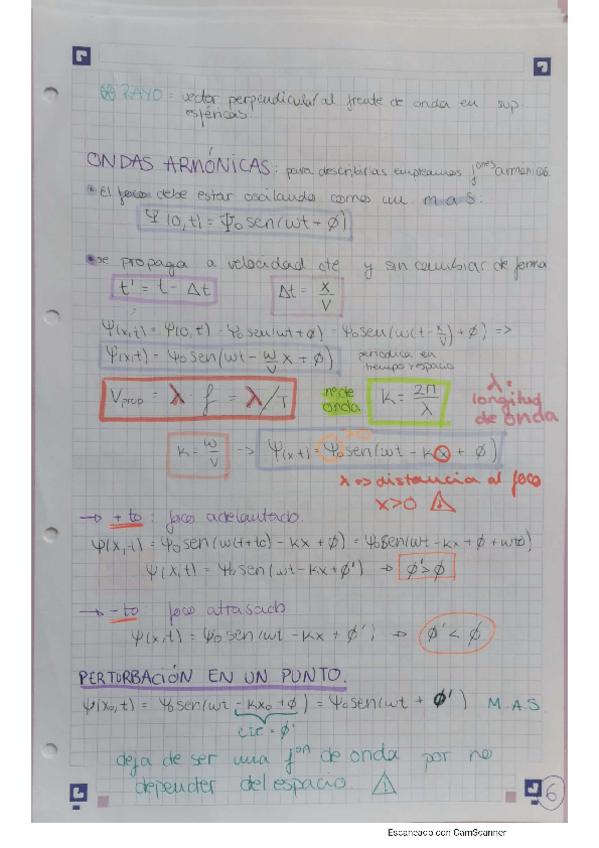 RAYO: vector perpendicular/al frente de onda en sup.
esféricas.
ONDAS ARMÓNICAS: para describirlas empleamos fones armónicas.
• El foco debe estar oscilando como un m a s:
Ψ(0,t) = Ψ₀ sen(ωt + φ)
• se propaga a velocidad cte y sin cambiar de forma
t' = t - Δt Δt = x/v
Ψ(x,t) = Ψ(0,t) = Ψ₀ sen(ωt + φ) = Ψ₀ sen(ω(t - x/v) + φ) =>
Ψ(x,t) = Ψ₀ sen(ωt - ω/v x + φ) periódica en
tiempo y espacio
Vprop = λ · f = λ/T nº de onda K = 2π/λ λ = longitud de onda
K = ω/v => Ψ(x,t) = Ψ₀ sen(ωt - Kx + φ)
x => distancia al foco
x>0 ⚠
→ + to : foco adelantado.
Ψ(x,t) = Ψ₀ sen(ω(t+to) - Kx + φ) = Ψ₀ sen(ωt - Kx + φ + ωto)
Ψ(x,t) = Ψ₀ sen(ωt - Kx + φ') → φ' > φ
→ - to : foco atrasado
Ψ(x,t) = Ψ₀ sen(ωt - Kx + φ') → φ' < φ
PERTURBACIÓN EN UN PUNTO.
Ψ(x₀,t) = Ψ₀ sen(ωt - Kx₀ + φ) = Ψ₀ sen(ωt + φ') M.A.S.
cte = φ'
deja de ser una fon de onda por no
depender del espacio. ⚠
6
Escaneado con CamScanner